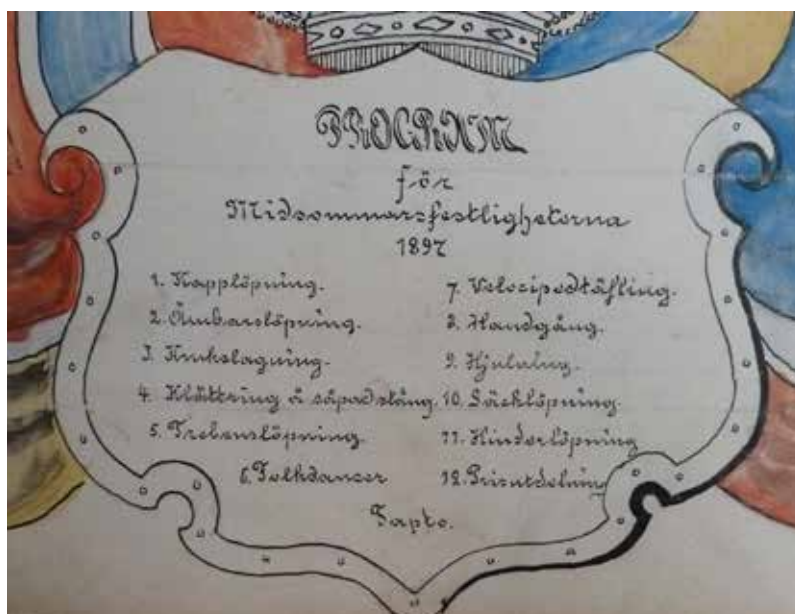 PROGRAM
för
Midsommarsfestligheterna
1897
1. Kapplöpning.
2. Ämbarslöpning.
3. Krukslagning.
4. Klättring å såpad stång.
5. Trebenslöpning.
6. Folkdanser
7. Velocipedtäfling.
8. Handgång.
9. Hjulning.
10. Säcklöpning.
11. Hinderlöpning
12. Prisutdelning
Tapto.